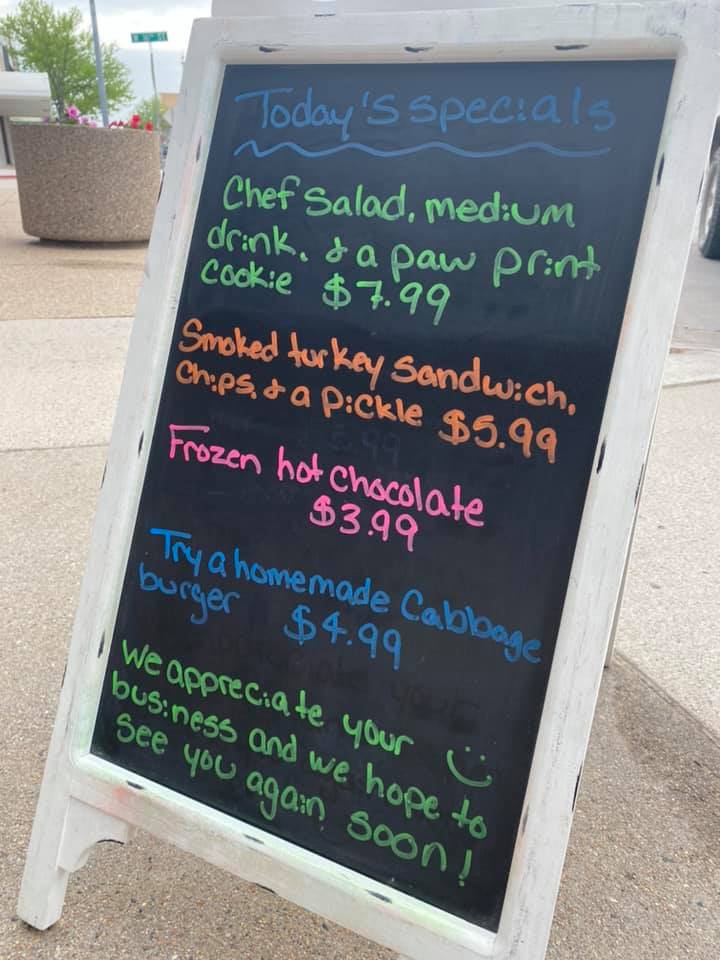 Today's specials
Chef Salad, medium
drink, & a paw print
cookie $7.99
Smoked turkey Sandwich,
Chips, & a Pickle $5.99
Frozen hot chocolate
$3.99
Try a homemade Cabbage
burger $4.99
We appreciate your
business and we hope to
see you again soon!